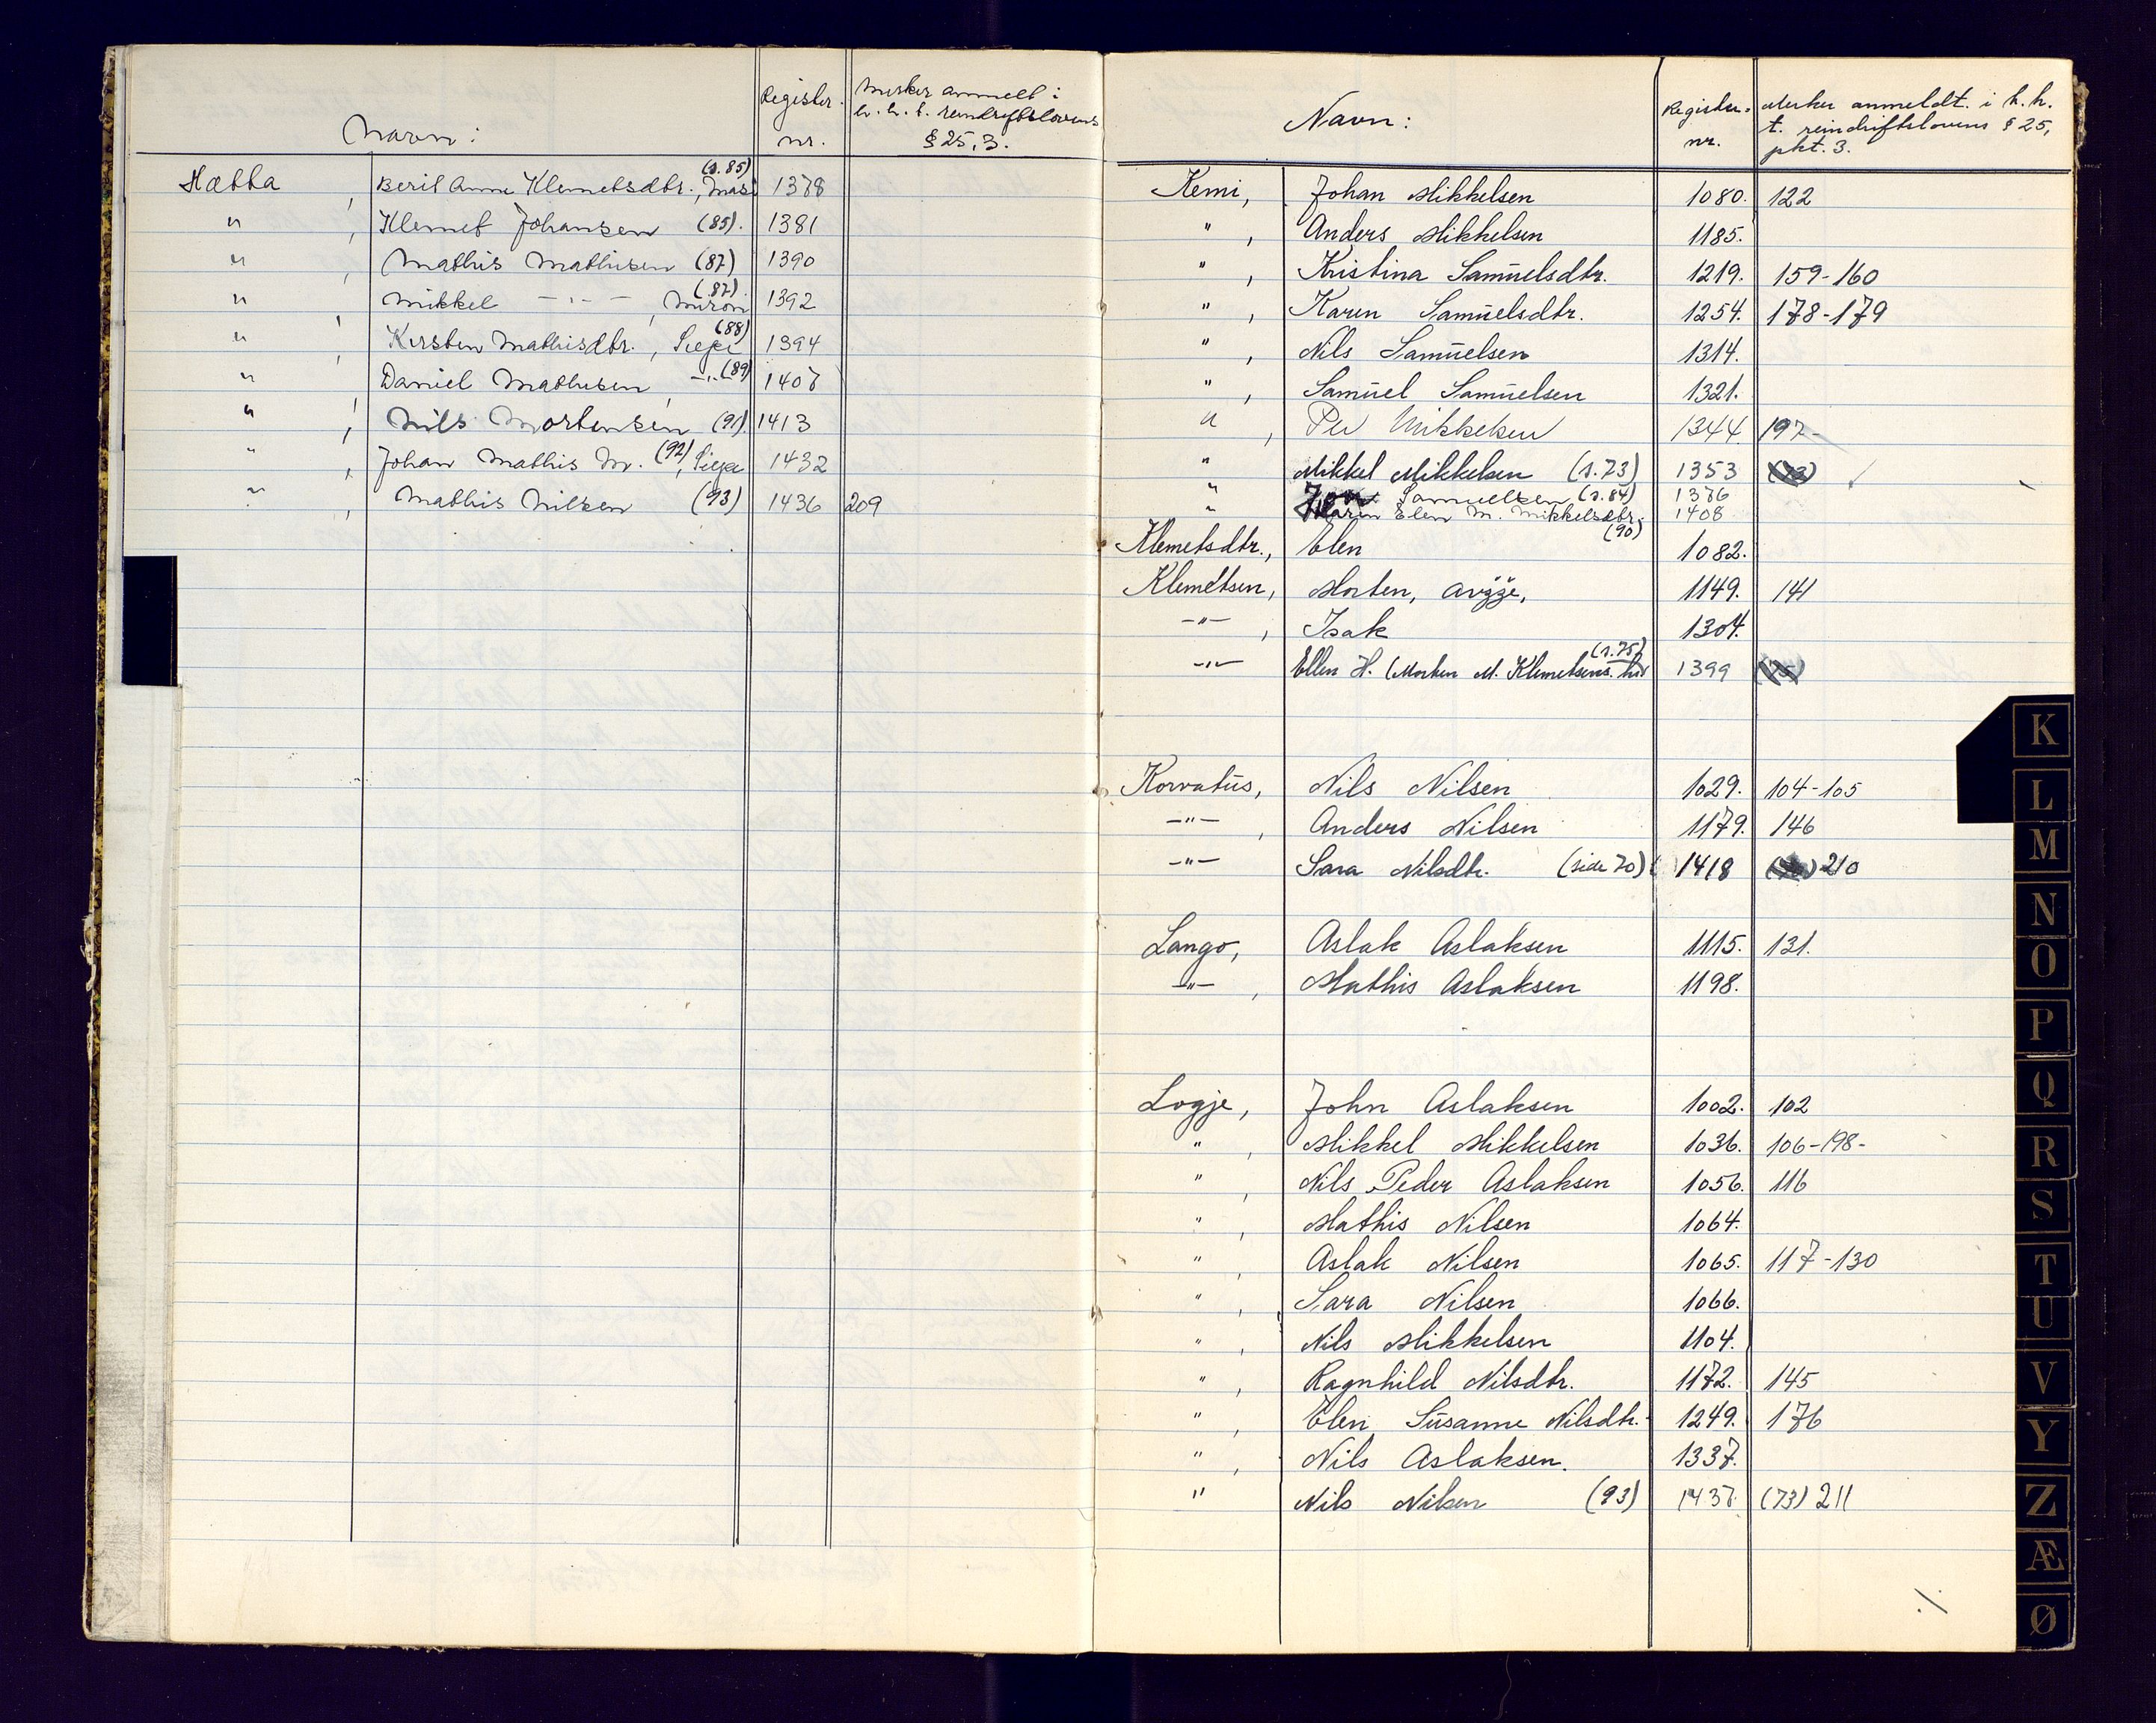 Navn: Register nr. Merker anmeldt i h. h. t. reindriftslovens § 25, 3.
Hætta, Berit Anne Klemetsdtr., Masi (s. 85) 1378
" , Klemet Johansen (85). 1381
" , Mathis Mathisen (87) 1390
" , Mikkel -"- , Miron (87) 1392
" , Kirsten Mathisdtr., Siepi (88) 1394
" , Daniel Mathisen, -"- (89) 1407
" , Nils Mortensen (91). 1413
" , Johan Mathis M. (92), Siepe 1432
" , Mathis Nilsen (93) 1436 209
Navn: Register- nr. Merker anmeldt. i h. h. t. reindriftslovens § 25, pkt. 3.
Kemi, Johan Mikkelsen 1080. 122
" , Anders Mikkelsen 1185.
" , Kristina Samuelsdtr. 1219. 159-160
" , Karen Samuelsdtr. 1254. 178-179
" , Nils Samuelsen 1314.
" , Samuel Samuelsen 1321.
" , Per Mikkelsen 1344. 197-
" Mikkel Mikkelsen (s. 73) 1353
" Samuelsen (s. 84) 1376
" Karen Elen M. Mikkelsdtr. (90) 1408
Klemetsdtr., Elen 1082.
Klemetsen, Morten, 1149. 141
-"- , Isak 1304.
-"- Ellen H. (Morten M. Klemetsens. (s. 75) 1399
Korvatus, Nils Nilsen 1029. 104-105
-"- , Anders Nilsen 1179. 146
-"- Sara Nilsdtr. (side 70) 1418 210
Lango, Aslak Aslaksen 1115. 131.
-"- , Mathis Aslaksen 1198.
Logje, John Aslaksen 1002. 102
" , Mikkel Mikkelsen 1036. 106-198-
" , Nils Peder Aslaksen 1056. 116
" , Mathis Nilsen 1064.
" , Aslak Nilsen 1065. 117-130
" , Sara Nilsen 1066.
" , Nils Mikkelsen 1104.
" , Ragnhild Nilsdtr. 1172. 145
" , Elen Susanne Nilsdtr. 1249. 176
" , Nils Aslaksen. 1337.
" Nils Nilsen (93) 1437. (73) 211
K
L
M
N
O
P
Q
R
S
T
U
V
Y
Z
Æ
Ø